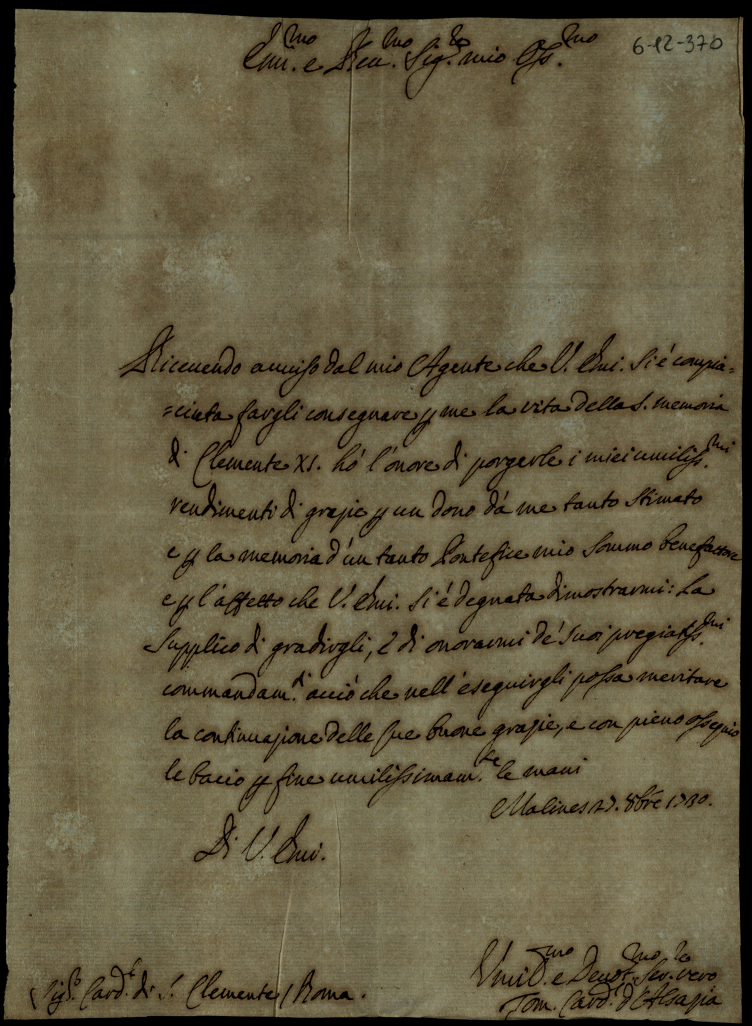 6-12-370
Em.mo e Reu.mo Sig.re mio Oss.mo
Riceuendo auuiso dal mio Agente che V. Emi. si é compia=
=ciuta fargli consegnare p me la vita della s. memoria
di Clemente XI. hó l'onore di porgerle i miei umiliss.mi
rendimenti di grazie p un dono dá me tanto stimato
e p la memoria d'un tanto Pontefice mio sommo benefattore
e p l'affetto che V. Emi. si é degnata dimostrarmi: La
supplico di gradirgli, e di onorarmi de' suoi pregiatiss.mi
commandam.ti acció che nell'eseguirgli possa meritare
la continuazione delle sue buone grazie, e con pieno ossequio
le bacio p fine umilissimam.te le mani
Malines 27. 8bre 1730.
Di V. Emi.
Sig.r Card.le di S. Clemente / Roma.
Umil.mo e Deuot.mo Ser.re vero
Tom. Card. d'Alsazia